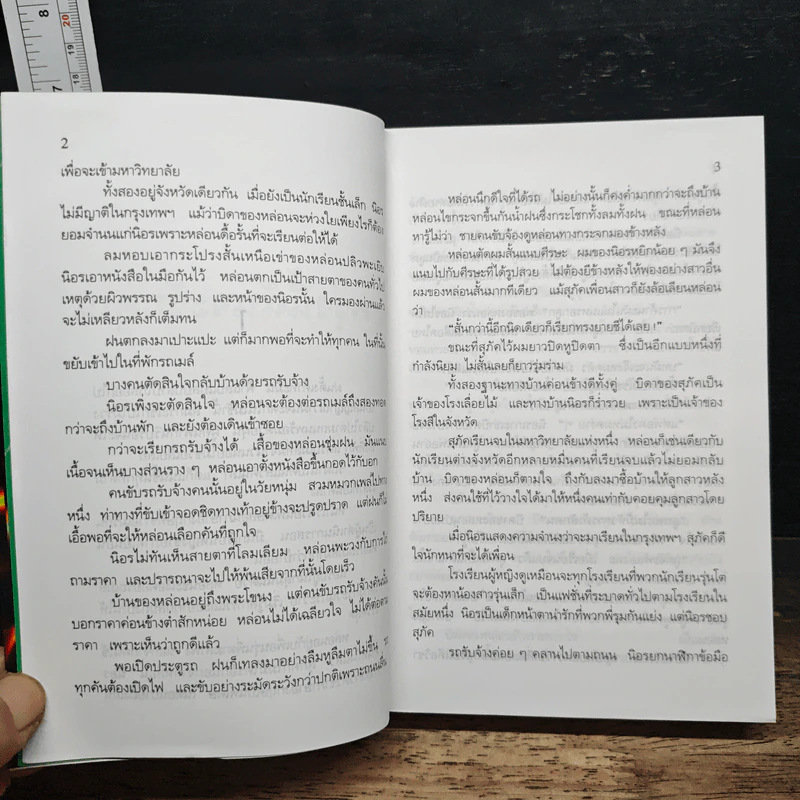 8
20
19
18
7
2
เพื่อจะเข้ามหาวิทยาลัย
ทั้งสองอยู่จังหวัดเดียวกัน เมื่อยังเป็นนักเรียนชั้นเล็ก นิอร
ไม่มีญาติในกรุงเทพฯ แม้ว่าบิดาของหล่อนจะห่วงใยเพียงไรก็ต้อง
ยอมจำนนแก่นิอรเพราะหล่อนดื้อรั้นที่จะเรียนต่อให้ได้
ลมหอบเอากระโปรงสั้นเหนือเข่าของหล่อนปลิวพะเยิบ
นิอรเอาหนังสือในมือกันไว้ หล่อนตกเป็นเป้าสายตาของคนทั่วไป
เหตุด้วยผิวพรรณ รูปร่าง และหน้าของนิอรนั้น ใครมองผ่านแล้ว
จะไม่เหลียวหลังก็เต็มทน
ฝนตกลงมาเปาะแปะ แต่ก็มากพอที่จะทำให้ทุกคน ในที่นั้น
ขยับเข้าไปในที่พักรถเมล์
บางคนตัดสินใจกลับบ้านด้วยรถรับจ้าง
นิอรเพิ่งจะตัดสินใจ หล่อนจะต้องต่อรถเมล์ถึงสองทอด
กว่าจะถึงบ้านพัก และยังต้องเดินเข้าซอย
กว่าจะเรียกรถรับจ้างได้ เสื้อของหล่อนชุ่มฝน มันแนบ
เนื้อจนเห็นบางส่วนราง ๆ หล่อนเอาตั้งหนังสือขึ้นกอดไว้กับอก
คนขับรถรับจ้างคนนั้นอยู่ในวัยหนุ่ม สวมหมวกเพลไปทาง
หนึ่ง ท่าทางที่ขับเข้าจอดชิดทางเท้าอยู่ข้างจะปรูดปราด แต่ฝนก็ไม่
เอื้อพอที่จะให้หล่อนเลือกคันที่ถูกใจ
นิอรไม่ทันเห็นสายตาที่โลมเลียม หล่อนพะวงกับการไต่
ถามราคา และปรารถนาจะไปให้พ้นเสียจากที่นั้นโดยเร็ว
บ้านของหล่อนอยู่ถึงพระโขนง แต่คนขับรถรับจ้างคันนั้น
บอกราคาค่อนข้างต่ำสักหน่อย หล่อนไม่ได้เฉลียวใจ ไม่ได้ต่อตาม
ราคา เพราะเห็นว่าถูกดีแล้ว
พอเปิดประตูรถ ฝนก็เทลงมาอย่างลืมหูลืมตาไม่ขึ้น รถ
ทุกคันต้องเปิดไฟ และขับอย่างระมัดระวังกว่าปกติเพราะถนนลื่น
3
หล่อนนึกดีใจที่ได้รถ ไม่อย่างนั้นก็คงค่ำมากกว่าจะถึงบ้าน
หล่อนไขกระจกขึ้นกันน้ำฝนซึ่งกระโชกทั้งลมทั้งฝน ขณะที่หล่อน
หารู้ไม่ว่า ชายคนขับจ้องดูหล่อนทางกระจกมองข้างหลัง
หล่อนตัดผมสั้นแนบศีรษะ ผมของนิอรหยิกน้อย ๆ มันจึง
แนบไปกับศีรษะที่ได้รูปสวย ไม่ต้องยีข้างหลังให้พองอย่างสาวอื่น
ผมของหล่อนสั้นมากทีเดียว แม้สุภัคเพื่อนสาวก็ยังล้อเลียนหล่อน
ว่า
“สั้นกว่านี้อีกนิดเดียวก็เรียกทรงยายชีได้เลย !”
ขณะที่สุภัคไว้ผมยาวปิดหูปิดตา ซึ่งเป็นอีกแบบหนึ่งที่
กำลังนิยม ไม่สั้นเลยก็ยาวรุ่มร่าม
ทั้งสองฐานะทางบ้านค่อนข้างดีทั้งคู่ บิดาของสุภัคเป็น
เจ้าของโรงเลื่อยไม้ และทางบ้านนิอรก็ร่ำรวย เพราะเป็นเจ้าของ
โรงสีในจังหวัด
สุภัคเรียนจบในมหาวิทยาลัยแห่งหนึ่ง หล่อนก็เช่นเดียวกับ
นักเรียนต่างจังหวัดอีกหลายหมื่นคนที่เรียนจบแล้วไม่ยอมกลับ
บ้าน บิดาของหล่อนก็ตามใจ ถึงกับลงมาซื้อบ้านให้ลูกสาวหลัง
หนึ่ง ส่งคนใช้ที่ไว้วางใจได้มาให้หนึ่งคนเท่ากับคอยคุมลูกสาวโดย
ปริยาย
เมื่อนิอรแสดงความจำนงว่าจะมาเรียนในกรุงเทพฯ สุภัคก็ดี
ใจนักหนาที่จะได้เพื่อน
โรงเรียนผู้หญิงดูเหมือนจะทุกโรงเรียนที่พวกนักเรียนรุ่นโต
จะต้องหาน้องสาวรุ่นเล็ก เป็นแฟชั่นที่ระบาดทั่วไปตามโรงเรียนใน
สมัยหนึ่ง นิอรเป็นเด็กหน้าตาน่ารักที่พวกพี่รุมกันแย่ง แต่นิอรชอบ
สุภัค
รถรับจ้างค่อย ๆ คลานไปตามถนน นิอรยกนาฬิกาข้อมือ